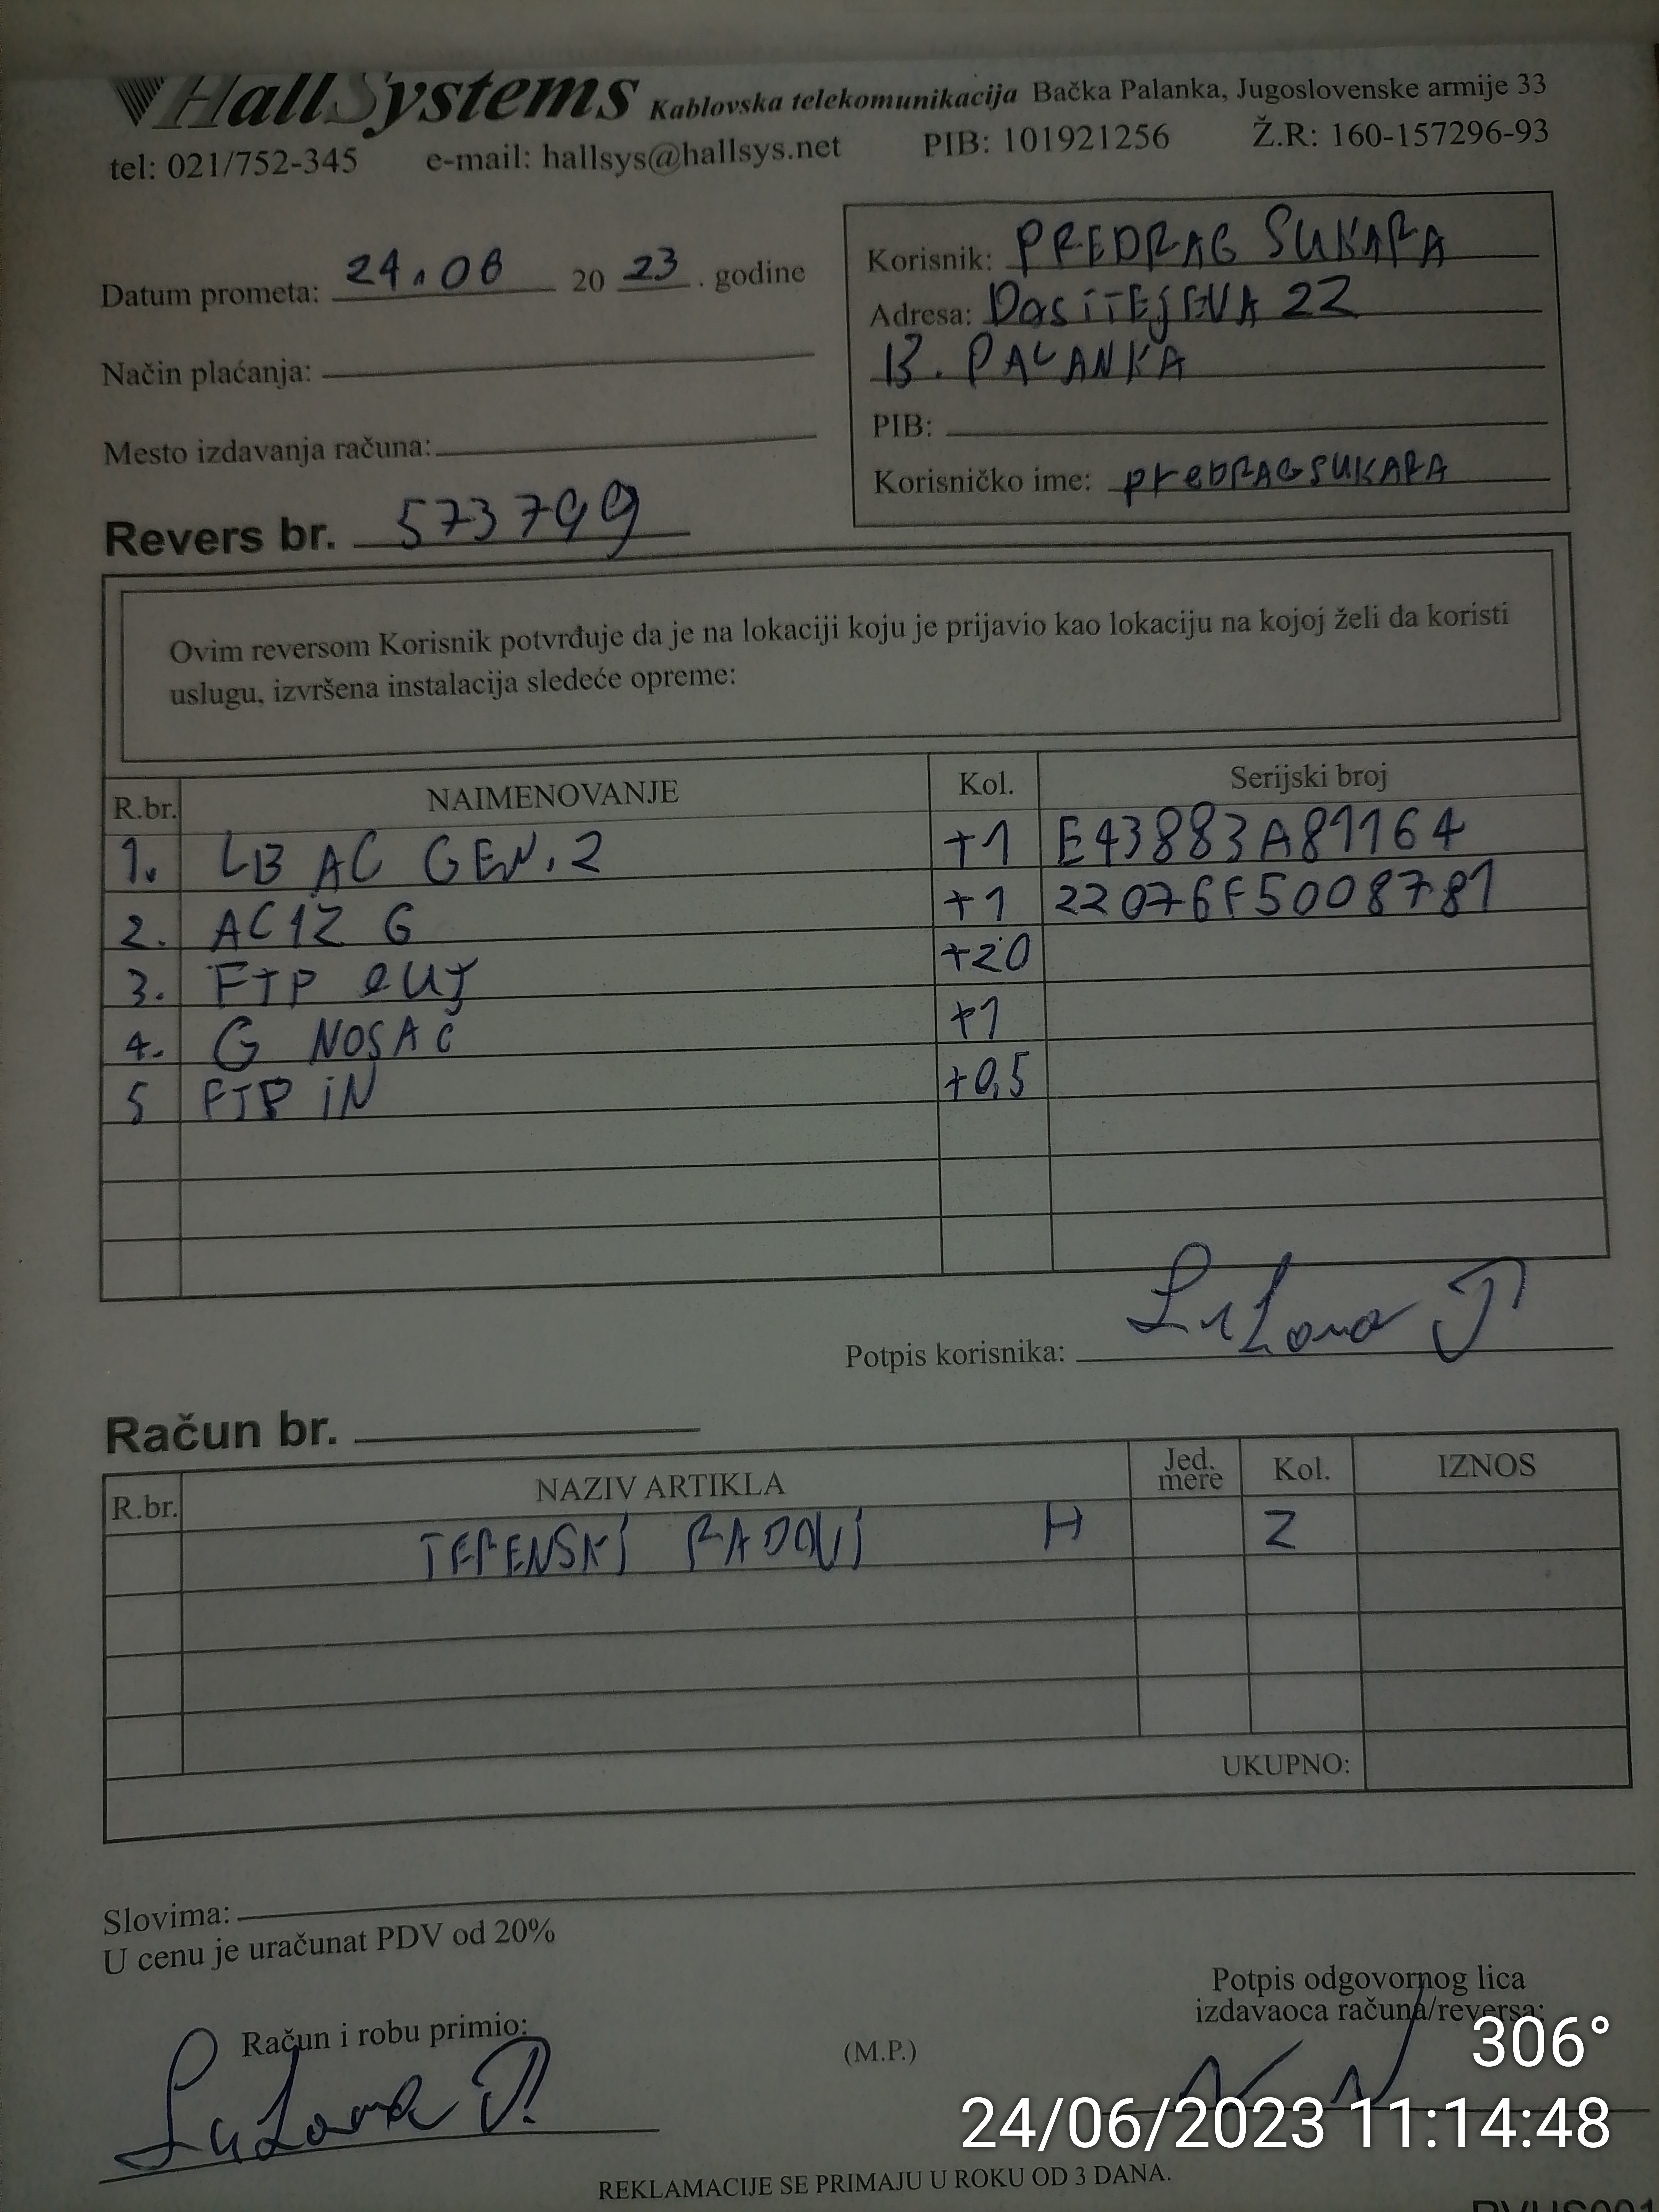 HallSystems Kablovska telekomunikacija Bačka Palanka, Jugoslovenske armije 33
tel: 021/752-345 e-mail: hallsys@hallsys.net PIB: 101921256 Ž.R: 160-157296-93
Datum prometa: 24.06 20 23. godine
Način plaćanja:
Mesto izdavanja računa:
Korisnik: PREDRAG SUKARA
Adresa: DOSITEJEVA 22
B. PALANKA
PIB:
Korisničko ime: preDRAGSUKARA
Revers br. 573799
Ovim reversom Korisnik potvrđuje da je na lokaciji koju je prijavio kao lokaciju na kojoj želi da koristi
uslugu, izvršena instalacija sledeće opreme:
R.br. NAIMENOVANJE Kol. Serijski broj
1. LB AC GEN.2 +1 E43883A81164
2. AC12 G +1 22076F5008781
3. FTP OUT +20
4. G NOSAČ +1
5 FTP IN +0,5
Potpis korisnika: Sukara P
Račun br.
R.br. NAZIV ARTIKLA Jed. mere Kol. IZNOS
TERENSKI RADOVI H 2
UKUPNO:
Slovima:
U cenu je uračunat PDV od 20%
Račun i robu primio:
Sukara P.
(M.P.)
Potpis odgovornog lica
izdavaoca računa/reversa:
306°
24/06/2023 11:14:48
REKLAMACIJE SE PRIMAJU U ROKU OD 3 DANA.